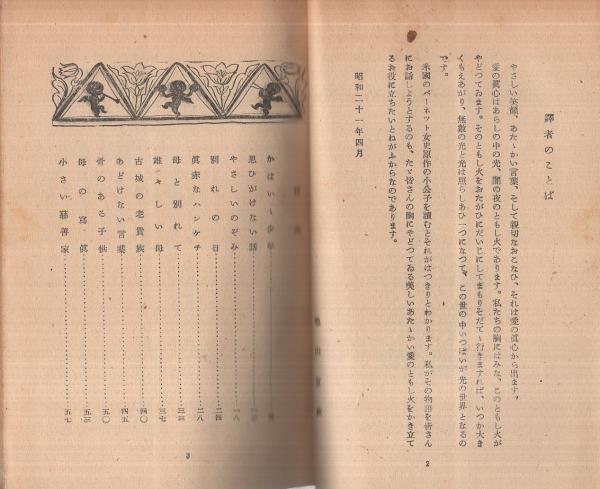 譯者のことば
やさしい笑顔、あたゝかい言葉、そして親切なおこなひ、それは愛の眞心から出ます。
愛の眞心はあらしの中の光、闇の夜のともし火であります。私たちの胸にはみな、このともし火が
やどつてゐます。そのともし火をおたがひにだいじにしてまもりそだてゝ行きますれば、いつか大き
くもえあがり、無數の光と光は照らしあひ一つになつて、この世の中いつぱいが光の世界となるの
です。
米國のバーネット女史原作の小公子を讀むとそれがはつきりとわかります。私がその物語を皆さん
にお話しようとするのも、たゞ皆さんの胸にやどつてゐる美しいあたゝかい愛のともし火をかき立て
るお役に立ちたいとねがふからなのであります。
昭和二十一年四月
2
かはいゝ少年
思ひがけない話
やさしいのぞみ 一八
別れの日 二四
眞赤なハンケチ 二八
母と別れて 三三
雄々しい母 三七
古城の老貴族 四〇
あどけない言葉 四五
骨のある子供 五〇
母の寫眞 五三
小さい慈善家 五七
3